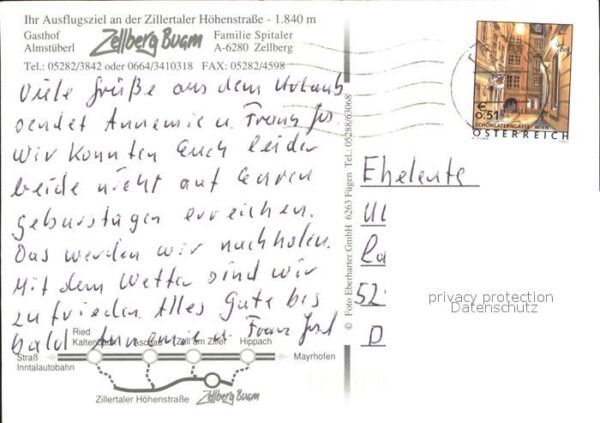 Ihr Ausflugsziel an der Zillertaler Höhenstraße - 1.840 m
Gasthof
Almstüberl
Zellberg Buam
Familie Spitaler
A-6280 Zellberg
Tel.: 05282/3842 oder 0664/3410318 FAX: 05282/4598
Viele Grüße aus dem Urlaub
sendet Annemie u. Franz Jos.
Wir konnten Euch leider
beide nicht auf Euren
Geburstagen erreichen.
Das werden wir nachholen.
Mit dem Wetter sind wir
zufrieden Alles Gute bis
bald Annemie u. Franz Josef
Ried
Kaltenbach
Aschau
Zell am Ziller
Hippach
Straß
Inntalautobahn
Mayrhofen
Zillertaler Höhenstraße
Zellberg Buam
© Foto Eberharter GmbH 6263 Fügen Tel.: 05288/63068
€
0,51
SCHÖNLATERNGASSE, WIEN
ÖSTERREICH
Eheleute
52
D
privacy protection
Datenschutz